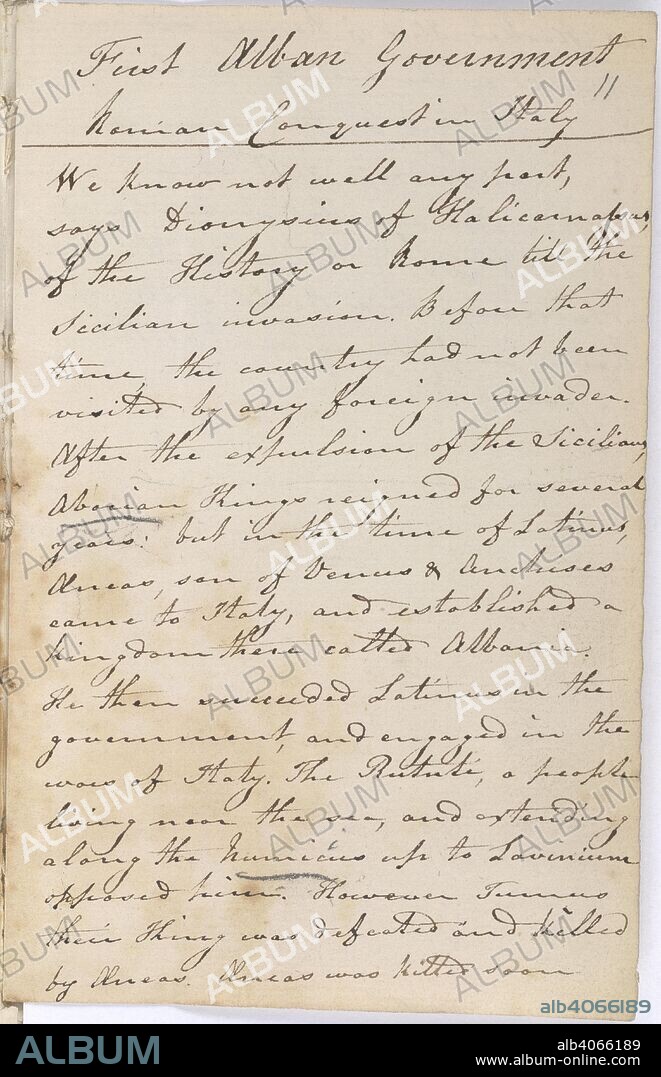 First Alban Government
11
Roman Conquest in Italy
We know not well any part,
says Dionysius of Halicarnassus,
of the History or Rome till the
Sicilian invasion. Before that
time, the country had not been
visited by any foreign invader.
After the expulsion of the Sicilians,
Abarian Kings reigned for several
years: but in the time of Latinus,
Æneas, son of Venus & Anchises
came to Italy, and established a
kingdom there called Albania.
He then succeeded Latinus in the
government, and engaged in the
wars of Italy. The Rutuli, a people
living near the sea, and extending
along the Numicus up to Lavinium
opposed him. However Turnus
their King was defeated and killed
by Æneas. Æneas was killed soon
alb4066189
ALBUM
alb4066189
www.album-online.com